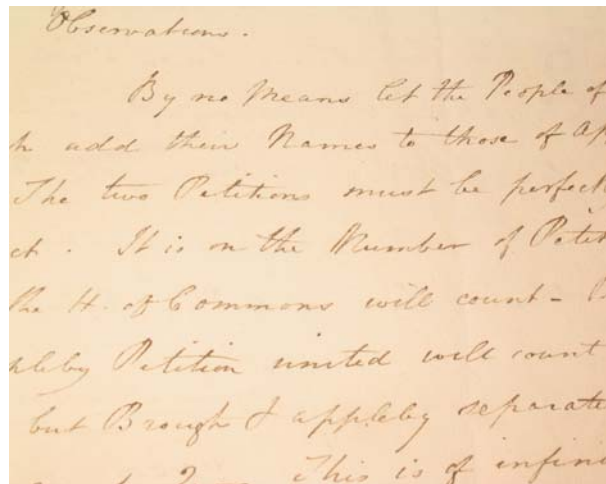 Observations.
By no Means let the People of
h add their Names to those of Ap
The two Petitions must be perfect
ct. It is on the Number of Petit
the H. of Commons will count - 
pleby Petition united will count
but Brough & Appleby separate
This is of infini